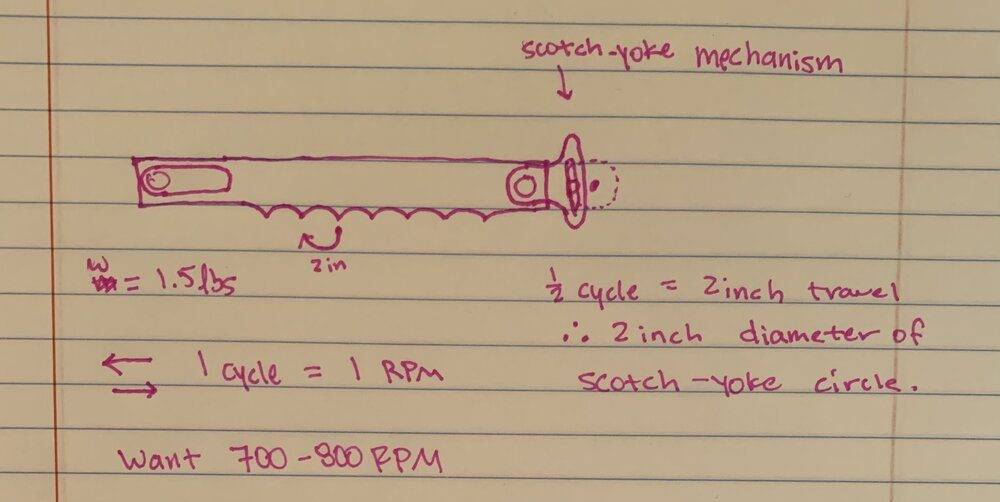 scotch-yoke mechanism
2in
w = 1.5lbs
½ cycle = 2inch travel
∴ 2 inch diameter of
scotch-yoke circle.
1 cycle = 1 RPM
Want 700-800 RPM